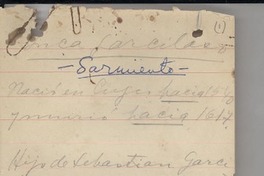 Inca Garcilaso
- Sarmiento -
Nació en hacia
y murió hacia 1617
Hijo de Sebastian Garci